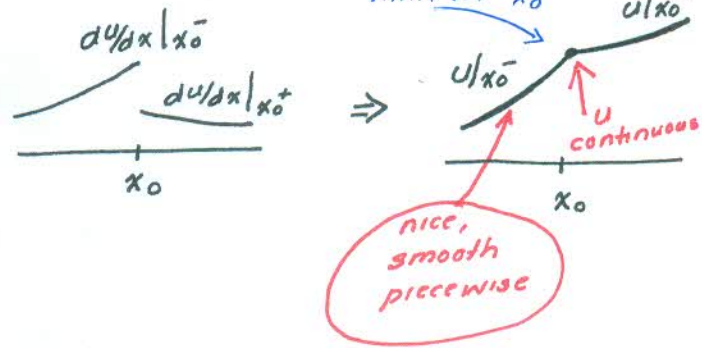 du/dx|x₀⁻
du/dx|x₀⁺
x₀
⇒
u|x₀⁻
u|x₀
u
continuous
x₀
nice,
smooth
piecewise